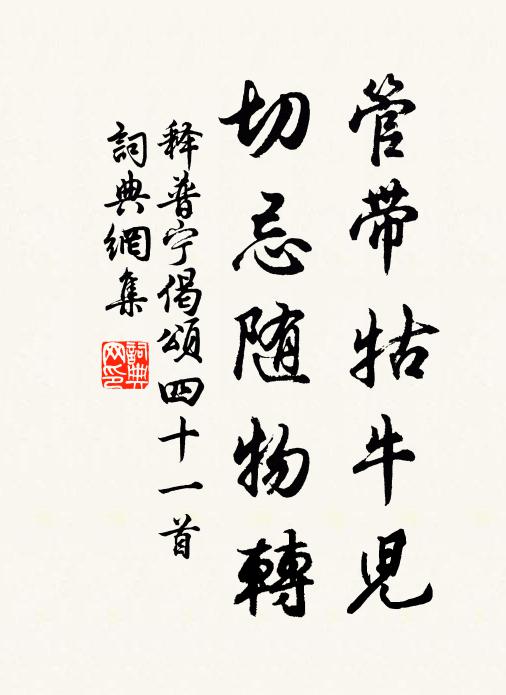 管带牯牛児
切忌随物轉
释普宁偈頌四十一首
詞典網集
詞典
网印